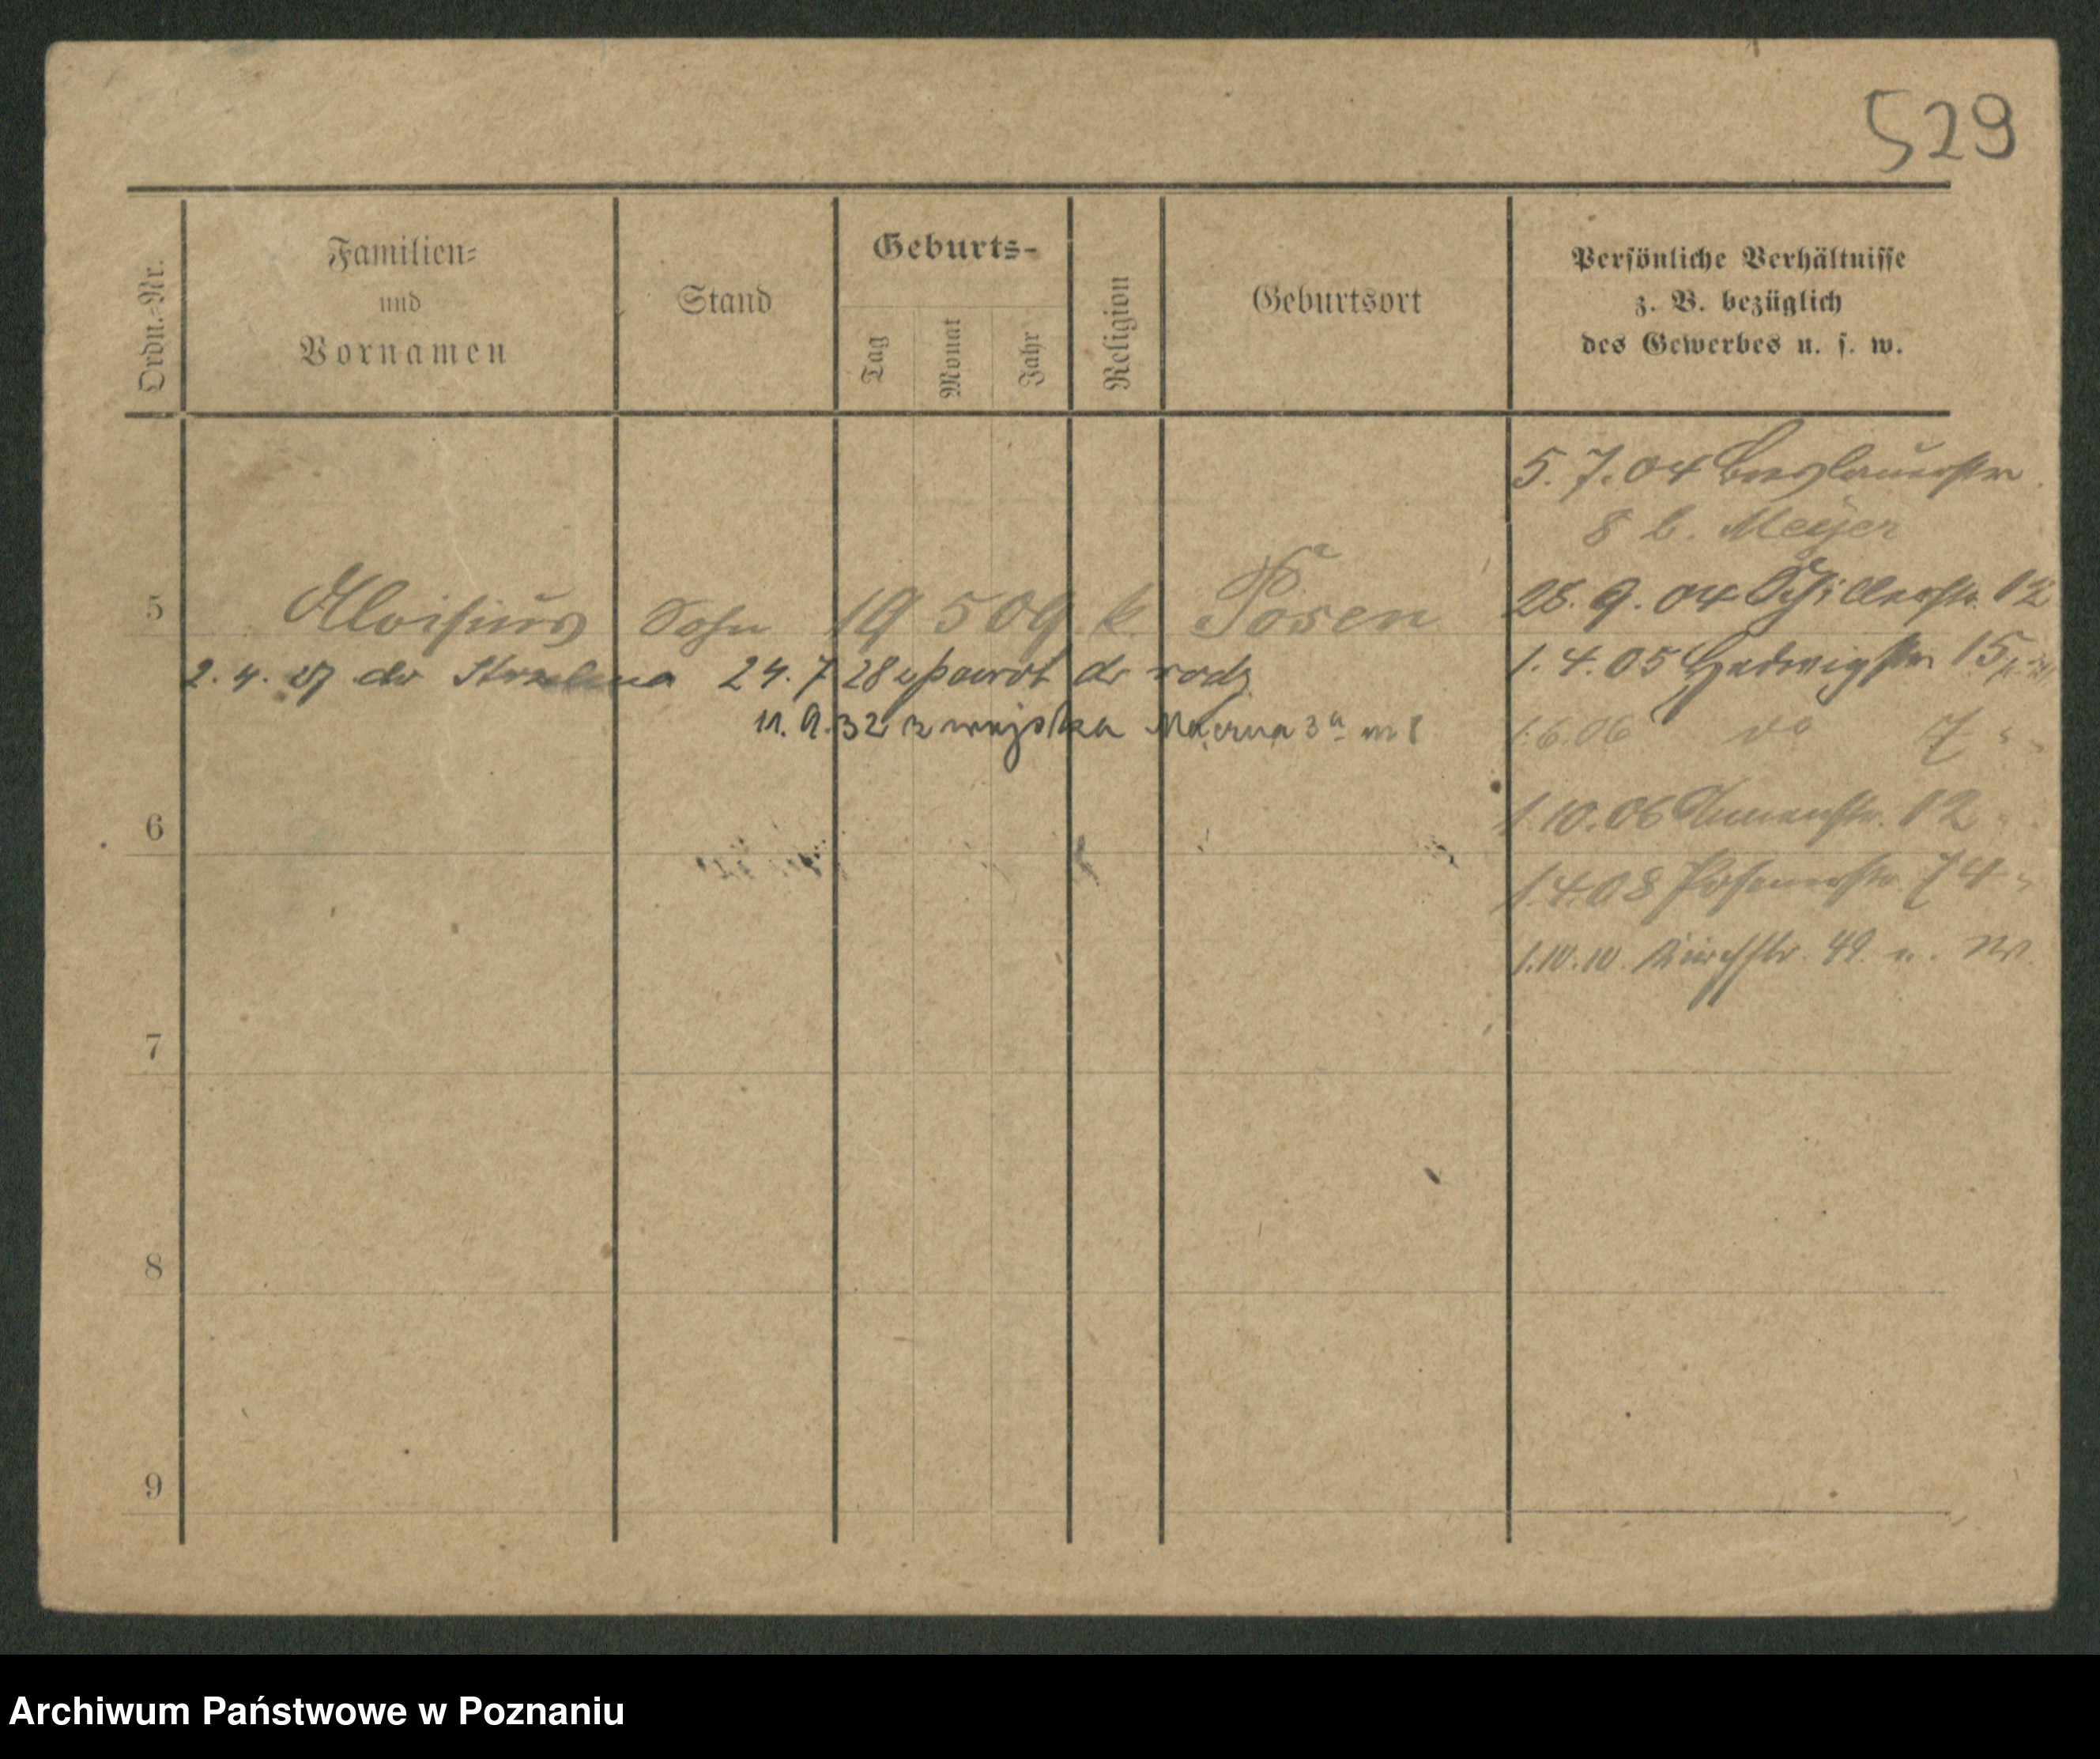 529
Ordn.-Nr.
Familien-
und
Vornamen
Stand
Geburts-
Tag
Monat
Jahr
Religion
Geburtsort
Persönliche Verhältnisse
z. B. bezüglich
des Gewerbes u. s. w.
5. 7. 04 Breslauerstr
8 b. Meyer
28. 9. 04 Schillerstr. 12
5 Aloisius Sohn 19 5 09 k. Posen
1. 4. 05 Hedwigstr 15
2. 4. 27 do Strzelna 24. 7 28 spowrót do rodz
11. 9. 32 z wojska 3a m 8
1.6.06 do 7 "
6
1.10.06 Annenstr. 12 "
1.4.08 Posenerstr. 74 "
1.10.10. Kirchstr. 49. u. W.
7
8
9
Archiwum Państwowe w Poznaniu